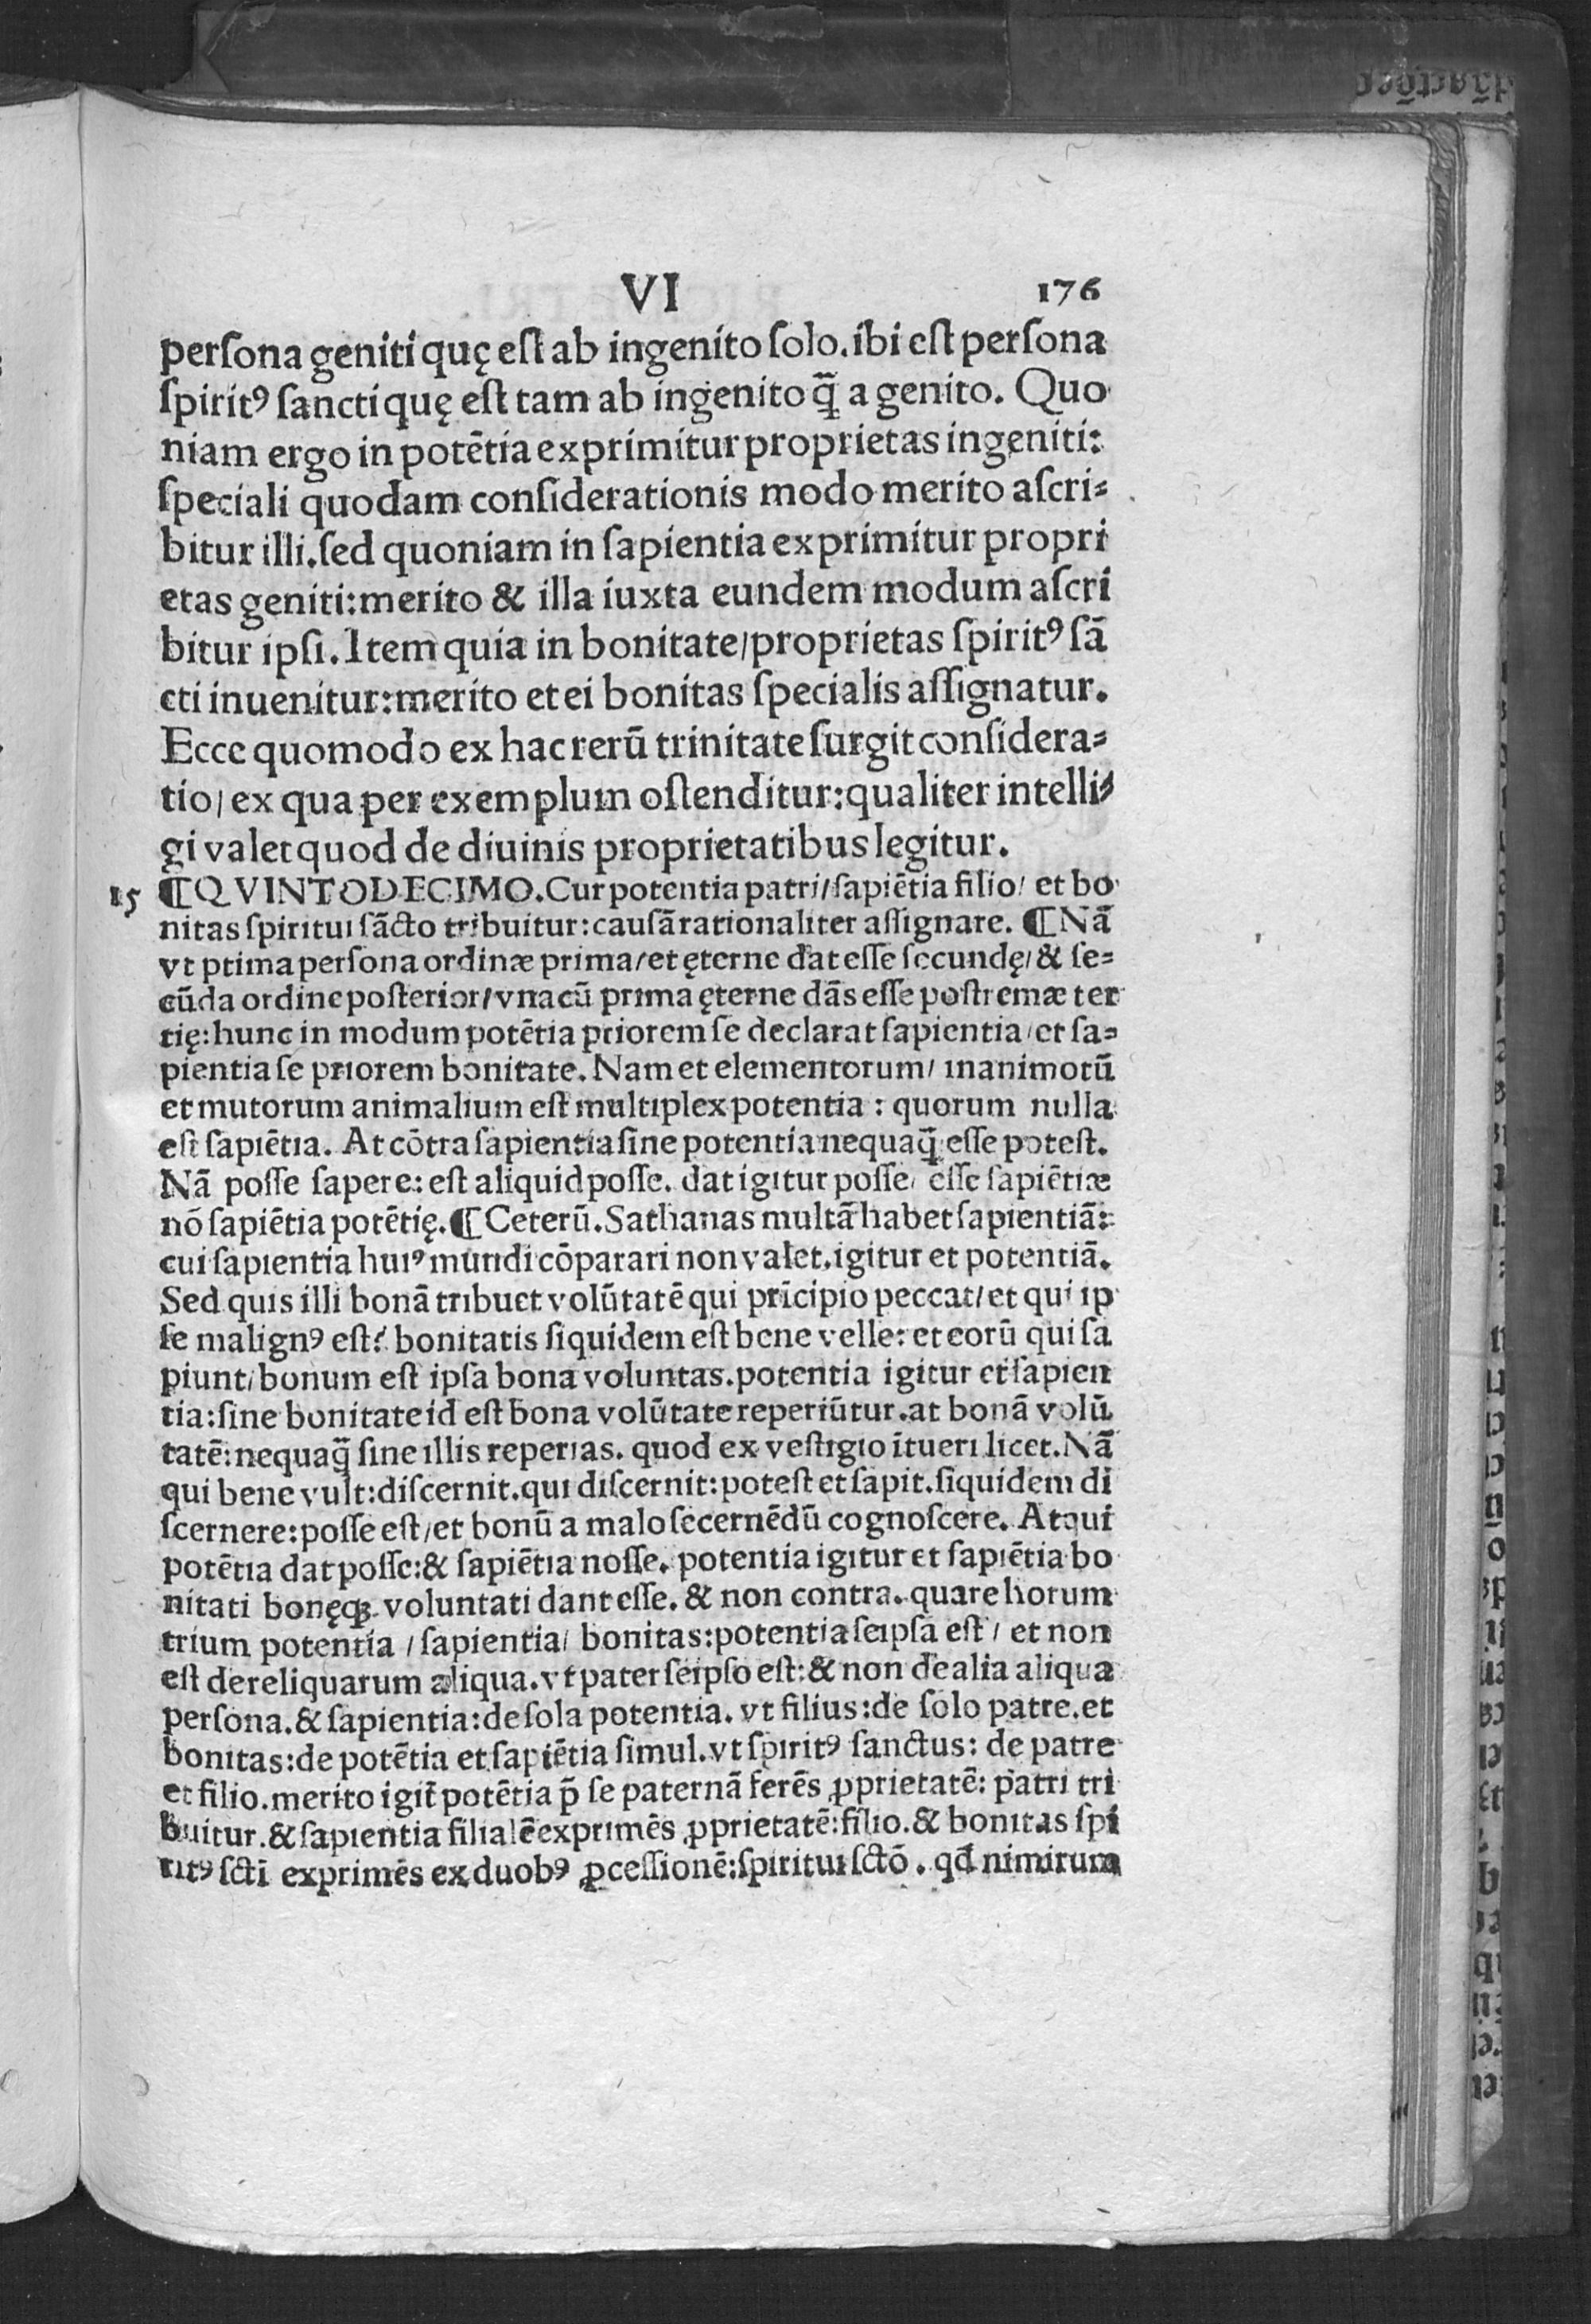 VI 176
perſona geniti quę eſt ab ingenito ſolo. ibi eſt perſona
ſpiritꝰ ſancti quę eſt tam ab ingenito q̃ a genito. Quo
niam ergo in potētia exprimitur proprietas ingeniti:
ſpeciali quodam conſiderationis modo merito aſcri=
bitur illi. ſed quoniam in ſapientia exprimitur propri
etas geniti: merito & illa iuxta eundem modum aſcri
bitur ipſi. Item quia in bonitate/proprietas ſpiritꝰ ſā
cti inuenitur: merito et ei bonitas ſpecialis aſſignatur.
Ecce quomodo ex hac rerū trinitate ſurgit conſidera=
tio/ ex qua per exemplum oſtenditur: qualiter intelli=
gi valet quod de diuinis proprietatibus legitur.
15 ¶QVINTODECIMO. Cur potentia patri/ ſapiētia filio/ et bo
nitas ſpiritui ſācto tribuitur: cauſā rationaliter aſſignare. ¶Nā
vt prima perſona ordinæ prima/ et ęterne dat eſſe ſecundę/ & ſe=
cūda ordine poſterior/ vna cū prima ęterne dās eſſe poſtremæ ter
tię: hunc in modum potētia priorem ſe declarat ſapientia/ et ſa=
pientia ſe priorem bonitate. Nam et elementorum/ inanimotū
et mutorum animalium eſt multiplex potentia: quorum nulla
eſt ſapiētia. At cōtra ſapientia ſine potentia nequaq̃ eſſe poteſt.
Nā poſſe ſapere: eſt aliquid poſſe. dat igitur poſſe/ eſſe ſapiētiæ
nō ſapiētia potētię. ¶Ceterū. Sathanas multā habet ſapientiā:
cui ſapientia huiꝰ mundi cōparari non valet. igitur et potentiā.
Sed quis illi bonā tribuet volūtatē qui prīcipio peccat/ et qui ip
ſe malignꝰ eſt? bonitatis ſiquidem eſt bene velle: et eorū qui ſa
piunt/ bonum eſt ipſa bona voluntas. potentia igitur et ſapien
tia: ſine bonitate id eſt bona volūtate reperiūtur. at bonā volū
tatē: nequaq̃ ſine illis reperias. quod ex veſtigio ītueri licet. Nā
qui bene vult: diſcernit. qui diſcernit: poteſt et ſapit. ſiquidem di
ſcernere: poſſe eſt/ et bonū a malo ſecernēdū cognoſcere. Atqui
potētia dat poſſe: & ſapiētia noſſe. potentia igitur et ſapiētia bo
nitati bonęqꝫ voluntati dant eſſe. & non contra. quare horum
trium potentia/ ſapientia/ bonitas: potentia ſeipſa eſt/ et non
eſt de reliquarum aliqua. vt pater ſeipſo eſt: & non de alia aliqua
perſona. & ſapientia: de ſola potentia. vt filius: de ſolo patre. et
bonitas: de potētia et ſapiētia ſimul. vt ſpiritꝰ ſanctus: de patre
et filio. merito igit̃ potētia p̄ ſe paternā ferēs ꝓprietatē: patri tri
buitur. & ſapientia filialē exprimēs ꝓprietatē: filio. & bonitas ſpi
ritꝰ ſcti̅ exprimēs ex duobꝰ ꝓceſſionē: ſpiritui ſctō. qđ nimirum